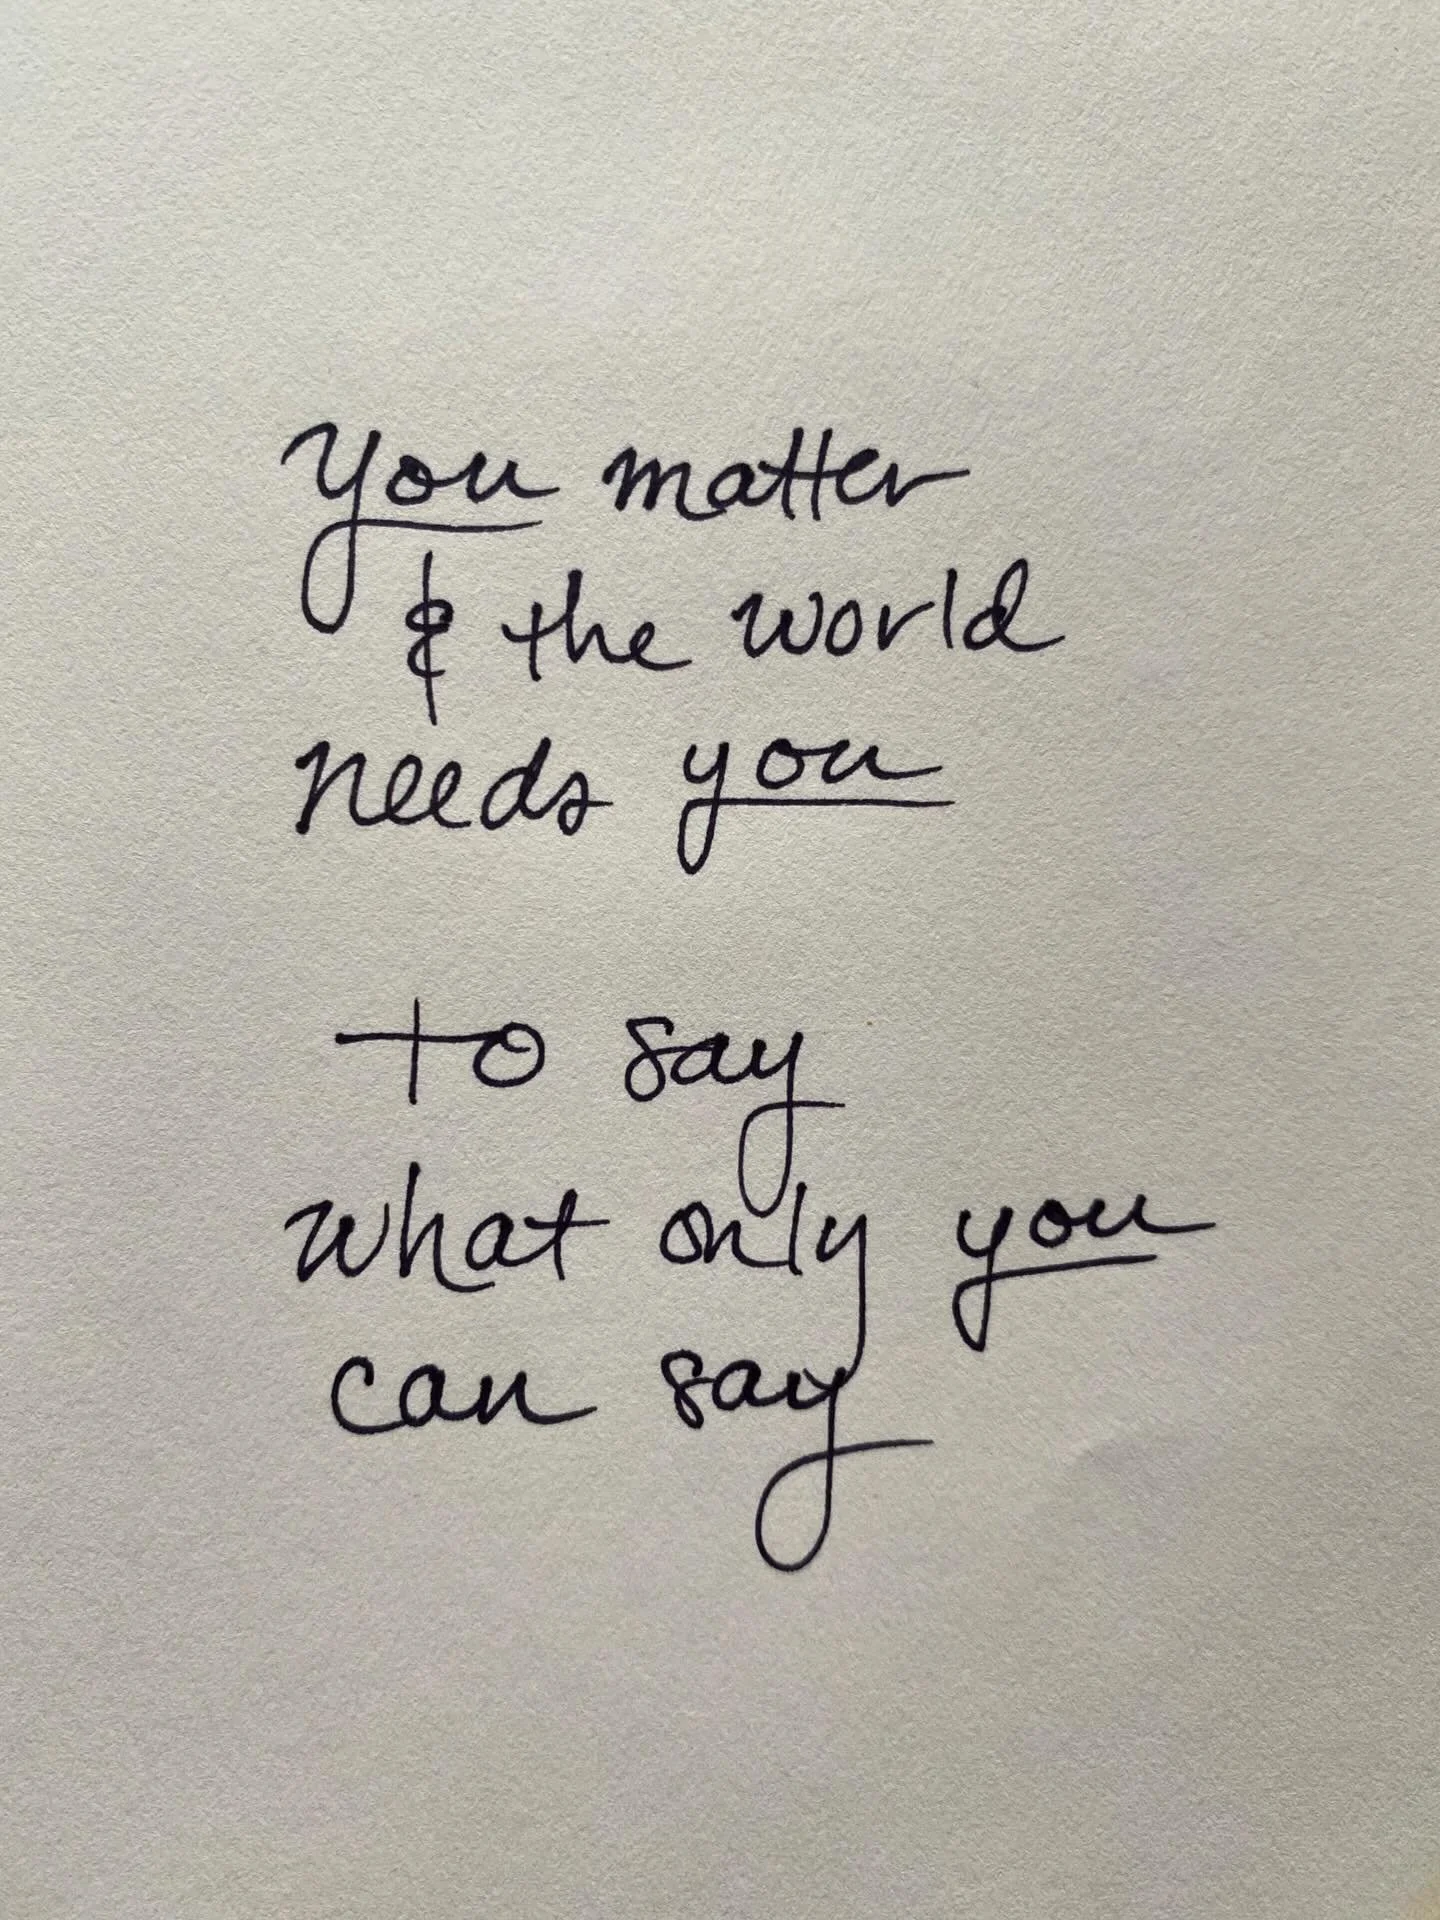 you matter
& the world
needs you
to say
what only you
can say